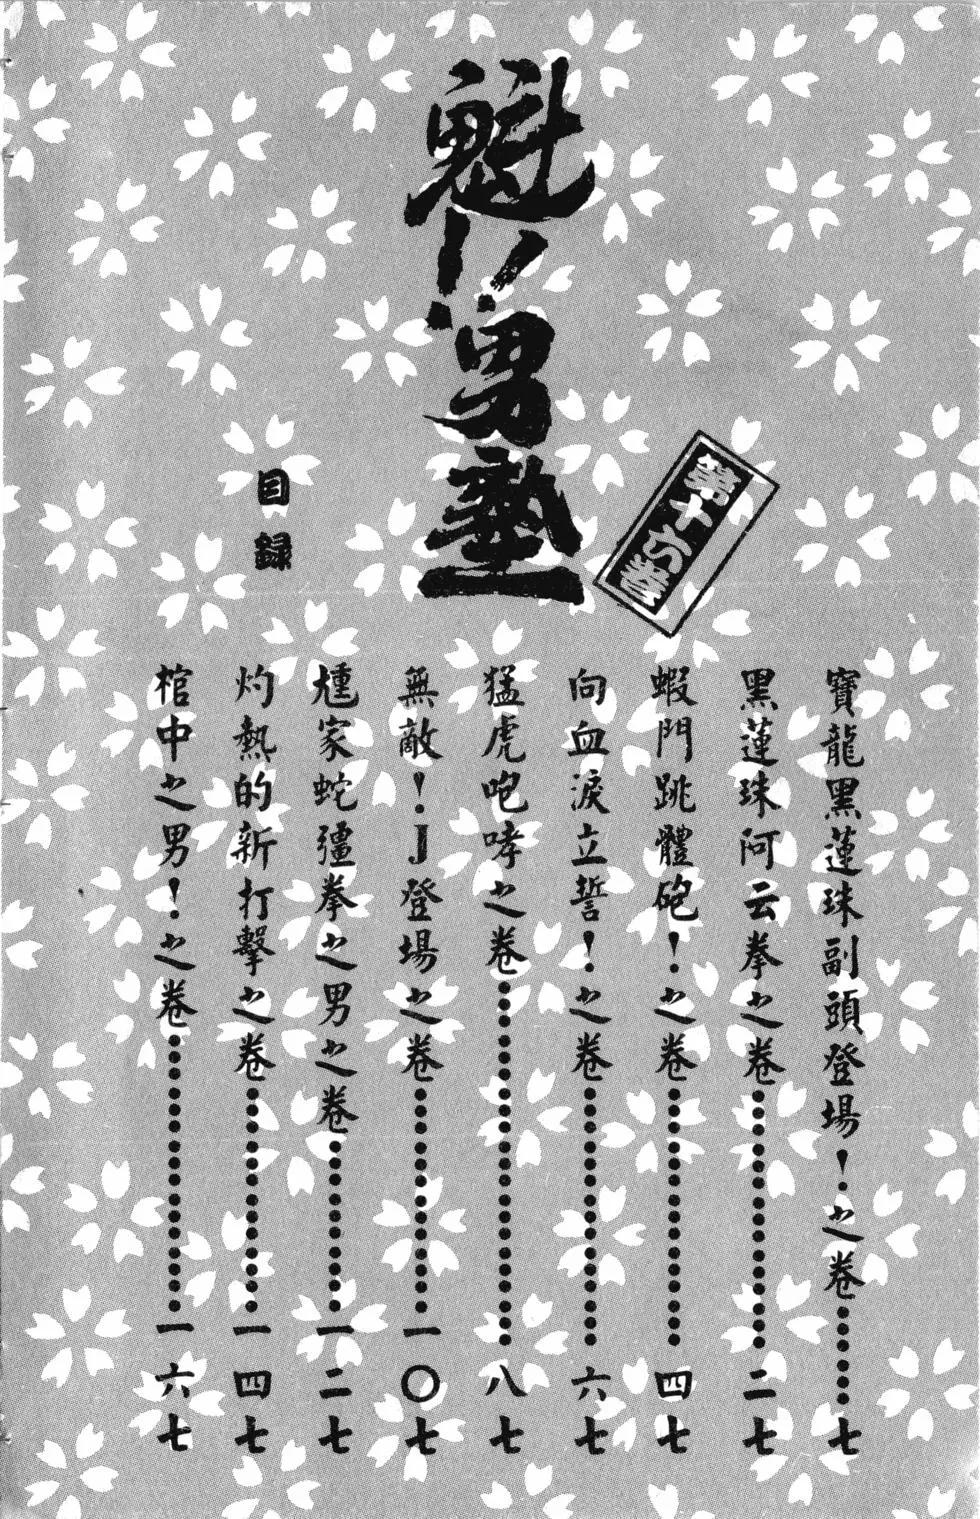 魁!!男塾
第十六卷
目錄
寶龍黑蓮珠副頭登場!之卷……七
黑蓮珠阿云拳之卷……二七
蝦門跳體砲!之卷……四七
向血淚立誓!之卷……六七
猛虎咆哮之卷……八七
無敵!J登場之卷……一〇七
家蛇彊拳之男之卷……一二七
灼熱的新打擊之卷……一四七
棺中之男!之卷……一六七